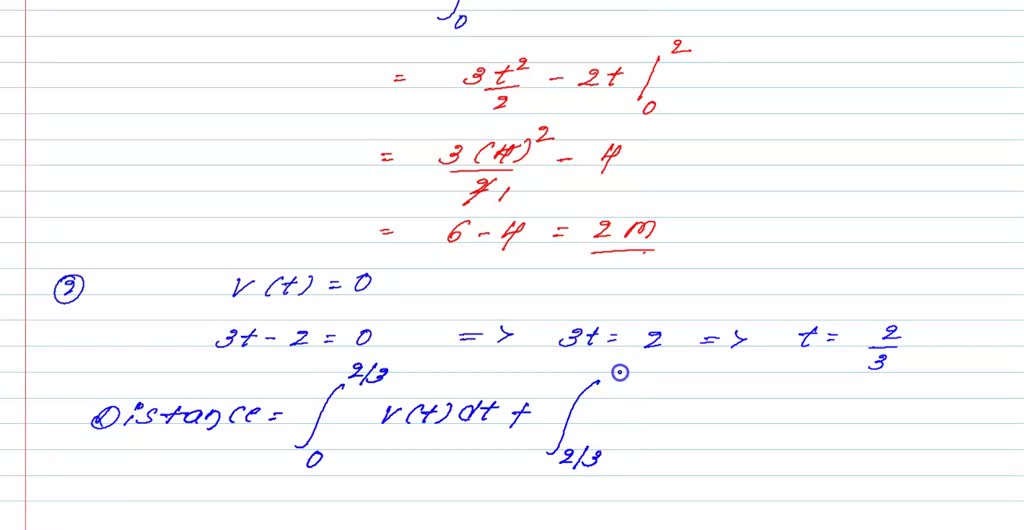 ∫₀
= 3t²/2 - 2t ∫₀²
= 3(4)²/2 1 - 4
= 6 - 4 = 2m
② v(t) = 0
3t - 2 = 0 => 3t = 2 => t = 2/3
Distance = ∫₀^2/3 v(t)dt + ∫_2/3